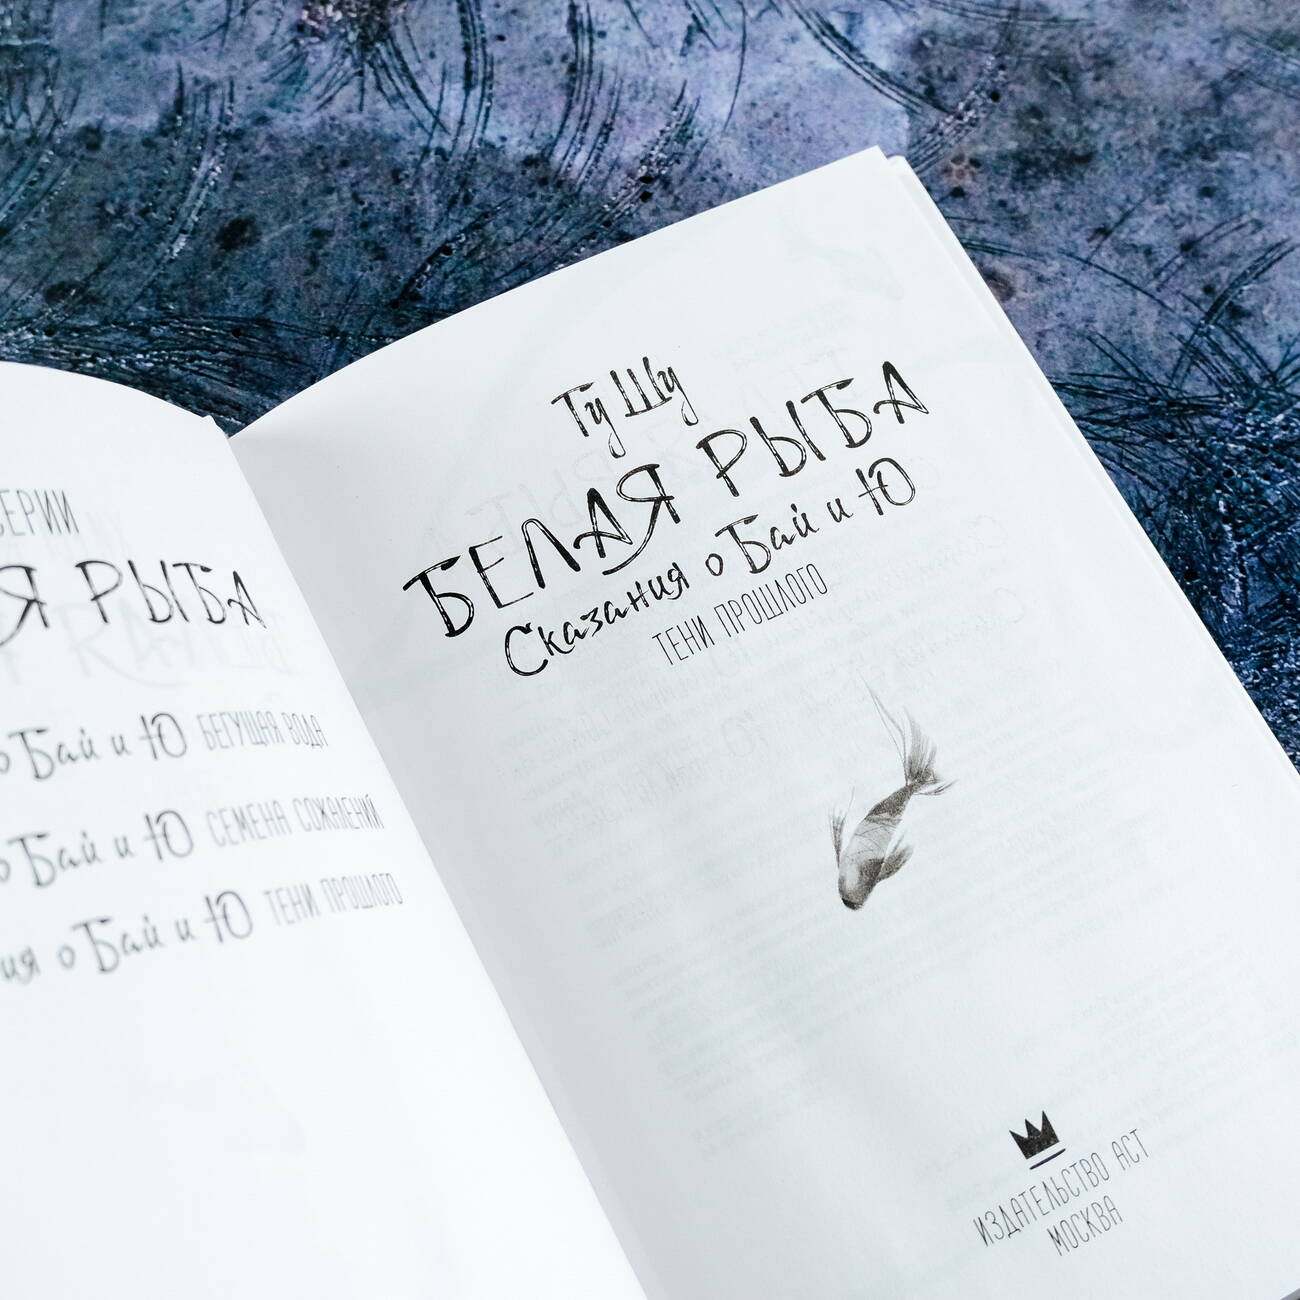 СЕРИИ
Я РЫБА
о Бай и Ю БЕГУЩАЯ ВОДА
о Бай и Ю СЕМЕНА СОЖАЛЕНИЙ
ия о Бай и Ю ТЕНИ ПРОШЛОГО
Ту Шу
БЕЛАЯ РЫБА
Сказания о Бай и Ю
ТЕНИ ПРОШЛОГО
ИЗДАТЕЛЬСТВО АСТ
МОСКВА